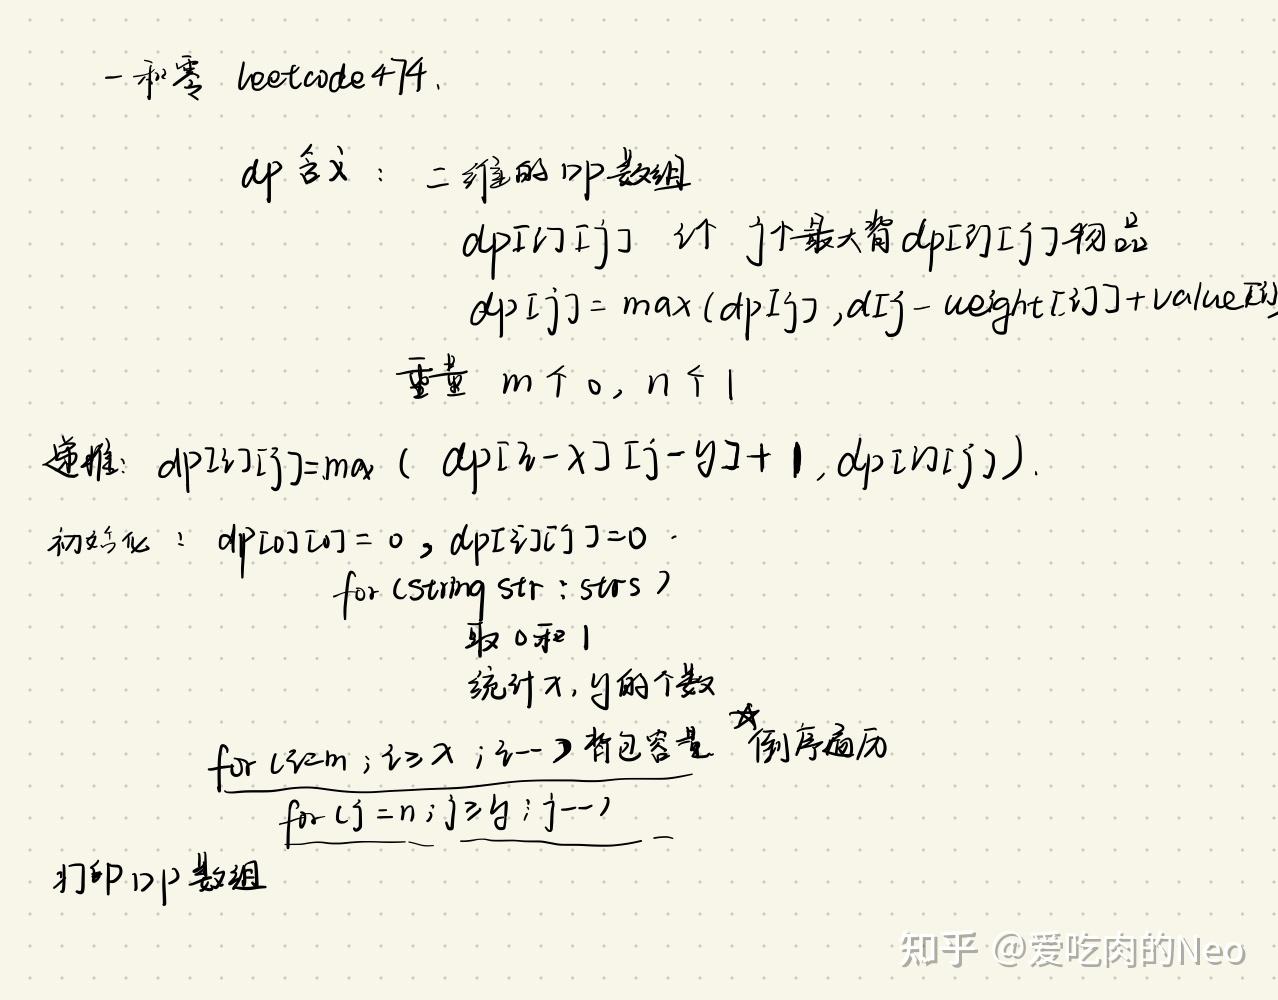 一和零 leetcode 474.
dp含义： 二维的DP数组
dp[i][j] i个 j个最大背dp[i][j]物品
dp[j] = max(dp[j], d[j - weight[i]] + value[i]
重量 m个0, n个1
递推: dp[i][j]=max( dp[i-x][j-y]+1, dp[i][j]).
初始化： dp[0][0]=0, dp[i][j]=0.
for (string str : strs)
取0和1
统计x, y的个数
for (i=m; i≥x; i--) 背包容量 ☆倒序遍历
for (j=n; j≥y; j--)
打印DP数组
知乎 @爱吃肉的Neo